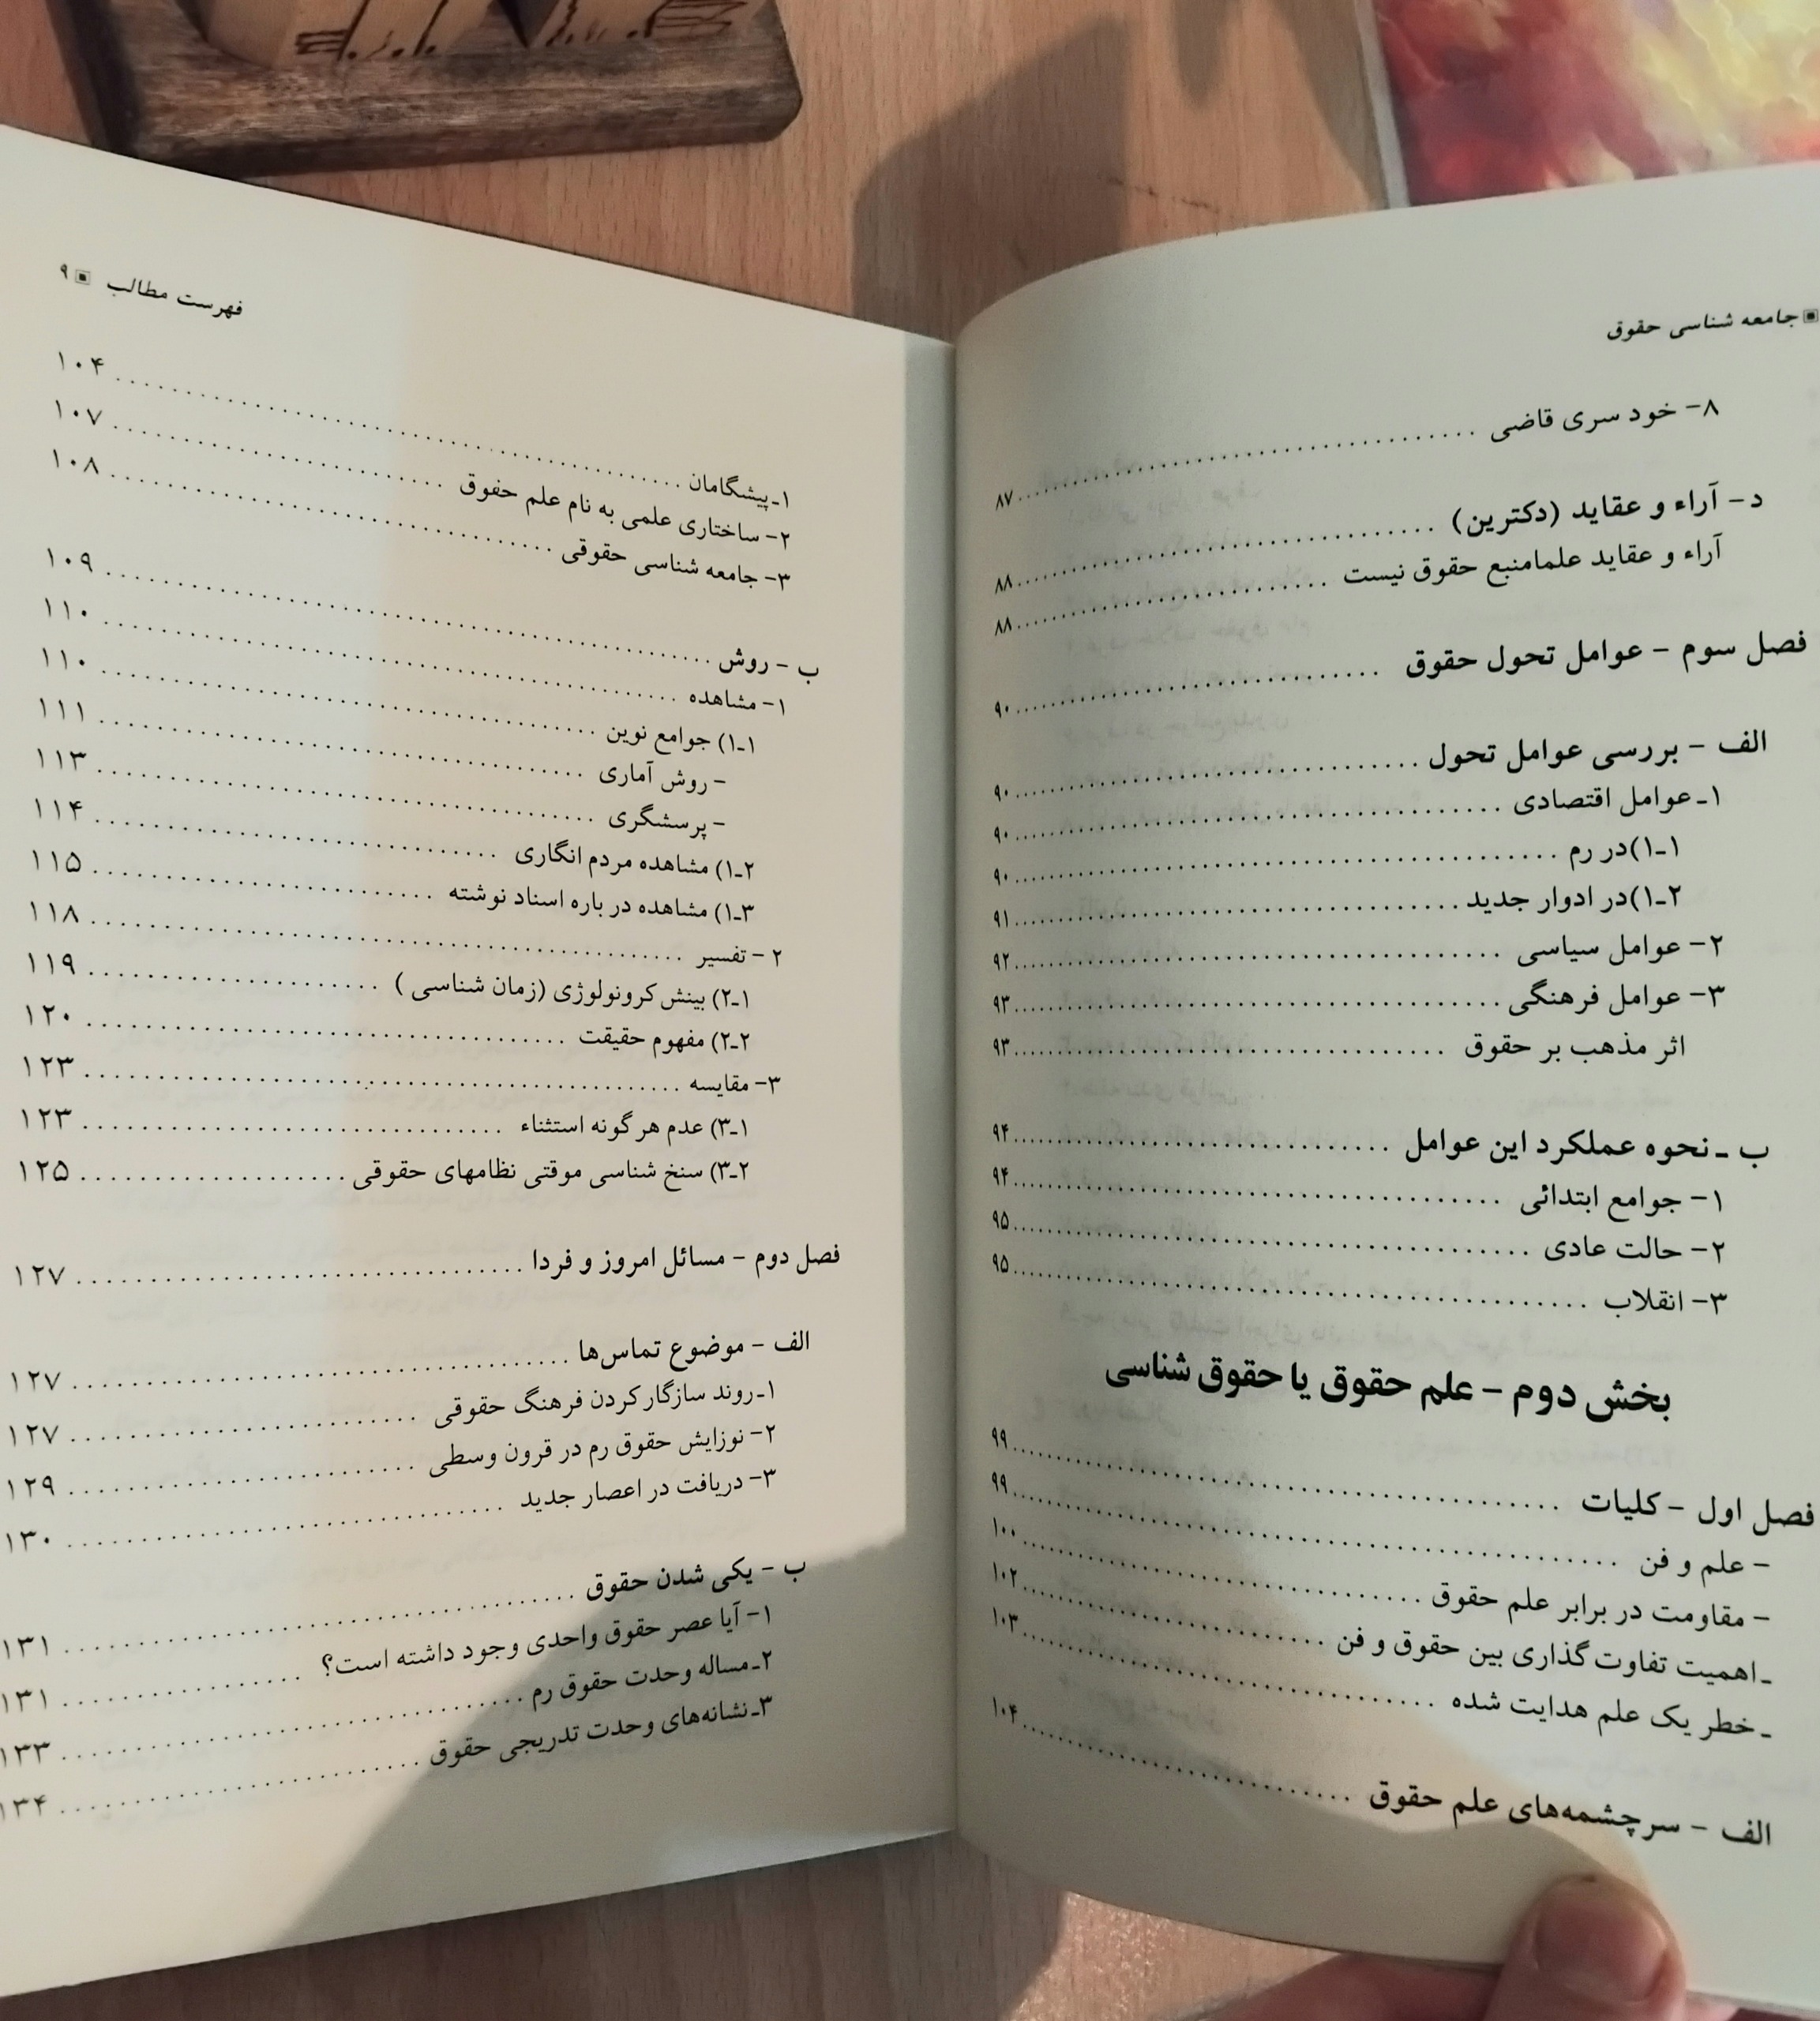 جامعه شناسی حقوق
۸- خود سری قاضی ........ ۸۷
د - آراء و عقاید (دکترین) ........ ۸۸
آراء و عقاید علمامنبع حقوق نیست ........ ۸۸
فصل سوم - عوامل تحول حقوق ........ ۹۰
الف - بررسی عوامل تحول ........ ۹۰
۱ـ عوامل اقتصادی ........ ۹۰
۱ـ۱)در رم ........ ۹۰
۲ـ۱)در ادوار جدید ........ ۹۱
۲- عوامل سیاسی ........ ۹۲
۳- عوامل فرهنگی ........ ۹۳
اثر مذهب بر حقوق ........ ۹۳
ب ـ نحوه عملکرد این عوامل ........ ۹۴
۱- جوامع ابتدائی ........ ۹۴
۲- حالت عادی ........ ۹۵
۳- انقلاب ........ ۹۵
بخش دوم - علم حقوق یا حقوق شناسی
فصل اول - کلیات ........ ۹۹
- علم و فن ........ ۹۹
- مقاومت در برابر علم حقوق ........ ۱۰۰
ـ اهمیت تفاوت گذاری بین حقوق و فن ........ ۱۰۲
ـ خطر یک علم هدایت شده ........ ۱۰۳
الف - سرچشمه‌های علم حقوق ........ ۱۰۴
فهرست مطالب ▣ ۹
۱ـ پیشگامان ........ ۱۰۴
۲- ساختاری علمی به نام علم حفوق ........ ۱۰۷
۳- جامعه شناسی حقوقی ........ ۱۰۸
ب - روش ........ ۱۰۹
۱- مشاهده ........ ۱۱۰
۱ـ۱) جوامع نوین ........ ۱۱۰
- روش آماری ........ ۱۱۱
- پرسشگری ........ ۱۱۳
۲ـ۱) مشاهده مردم انگاری ........ ۱۱۴
۳ـ۱) مشاهده در باره اسناد نوشته ........ ۱۱۵
۲ - تفسیر ........ ۱۱۸
۱ـ۲) بینش کرونولوژی (زمان شناسی ) ........ ۱۱۹
۲ـ۲) مفهوم حقیقت ........ ۱۲۰
۳- مقایسه ........ ۱۲۳
۱ـ۳) عدم هر گونه استثناء ........ ۱۲۳
۲ـ۳) سنخ شناسی موقتی نظامهای حقوقی ........ ۱۲۵
فصل دوم - مسائل امروز و فردا ........ ۱۲۷
الف - موضوع تماس‌ها ........ ۱۲۷
۱ـ روند سازگار کردن فرهنگ حقوقی ........ ۱۲۷
۲- نوزایش حقوق رم در قرون وسطی ........ ۱۲۹
۳- دریافت در اعصار جدید ........ ۱۳۰
ب - یکی شدن حقوق ........ ۱۳۱
۱- آیا عصر حقوق واحدی وجود داشته است؟ ........ ۱۳۱
۲ـ مساله وحدت حقوق رم ........ ۱۳۳
۳ـ نشانه‌های وحدت تدریجی حقوق ........ ۱۳۴